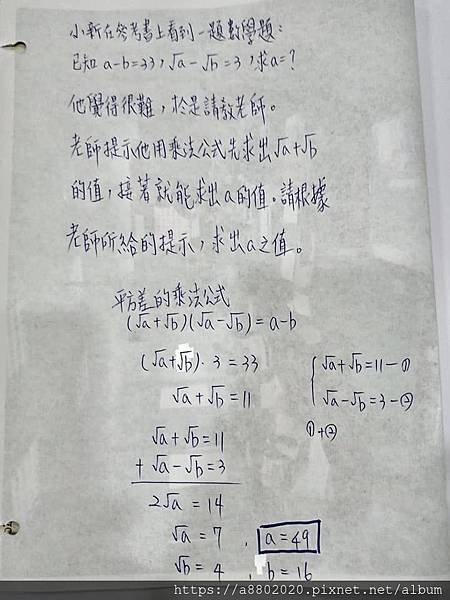 小新在參考書上看到一題數學題：
已知 a-b=33，√a-√b=3，求a=?
他覺得很難，於是請教老師。
老師提示他用乘法公式先求出√a+√b
的值，接著就能求出a的值。請根據
老師所給的提示，求出a之值。
平方差的乘法公式
(√a+√b)(√a-√b)=a-b
(√a+√b)·3=33
√a+√b=11
√a+√b=11
+ √a-√b=3
2√a=14
√a=7，a=49
√b=4，b=16
{√a+√b=11-①
√a-√b=3-②
①+②
https://a8802020.pixnet.net/album